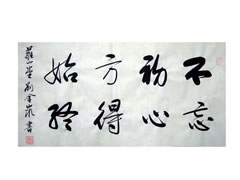 不忘
初心
方得
始終
書